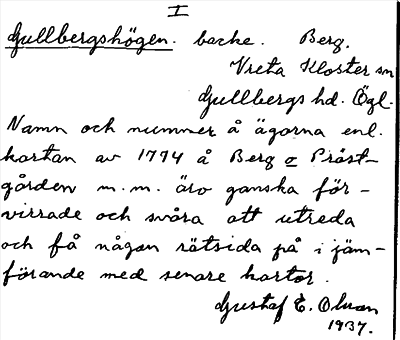 I
Gullbergshögen. backe. Berg.
Vreta Kloster sn
Gullbergs hd. Ögl.
Namn och nummer å ägorna enl.
kartan av 1774 å Berg o Präst-
gården m.m. äro ganska för-
virrade och svåra att utreda
och få någon rätsida på i jäm-
förande med senare kartor.
Gustaf E. Olsson
1937.